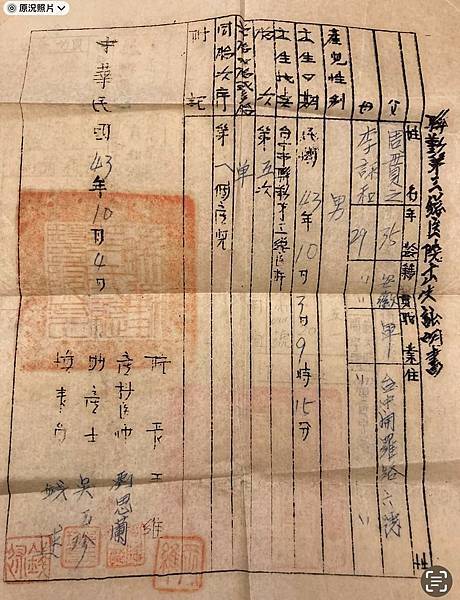 原況照片
聯勤第二總醫院出生證明書
姓名 年齡 籍貫 職業 住址
父 周貫之 35 安徽 軍 台中開羅路六號
母 李詠和 29 〃 〃 〃 〃
產兒性別 男
出生日期 民國43年10月3日9時15分
出生地點 台中市聯勤第二總醫院
胎次 第五次
單
同胎次序 第一個產兒
附記
中華民國43年10月4日
院長王維
產科醫師 劉思蘭
助產士 吳玉珍